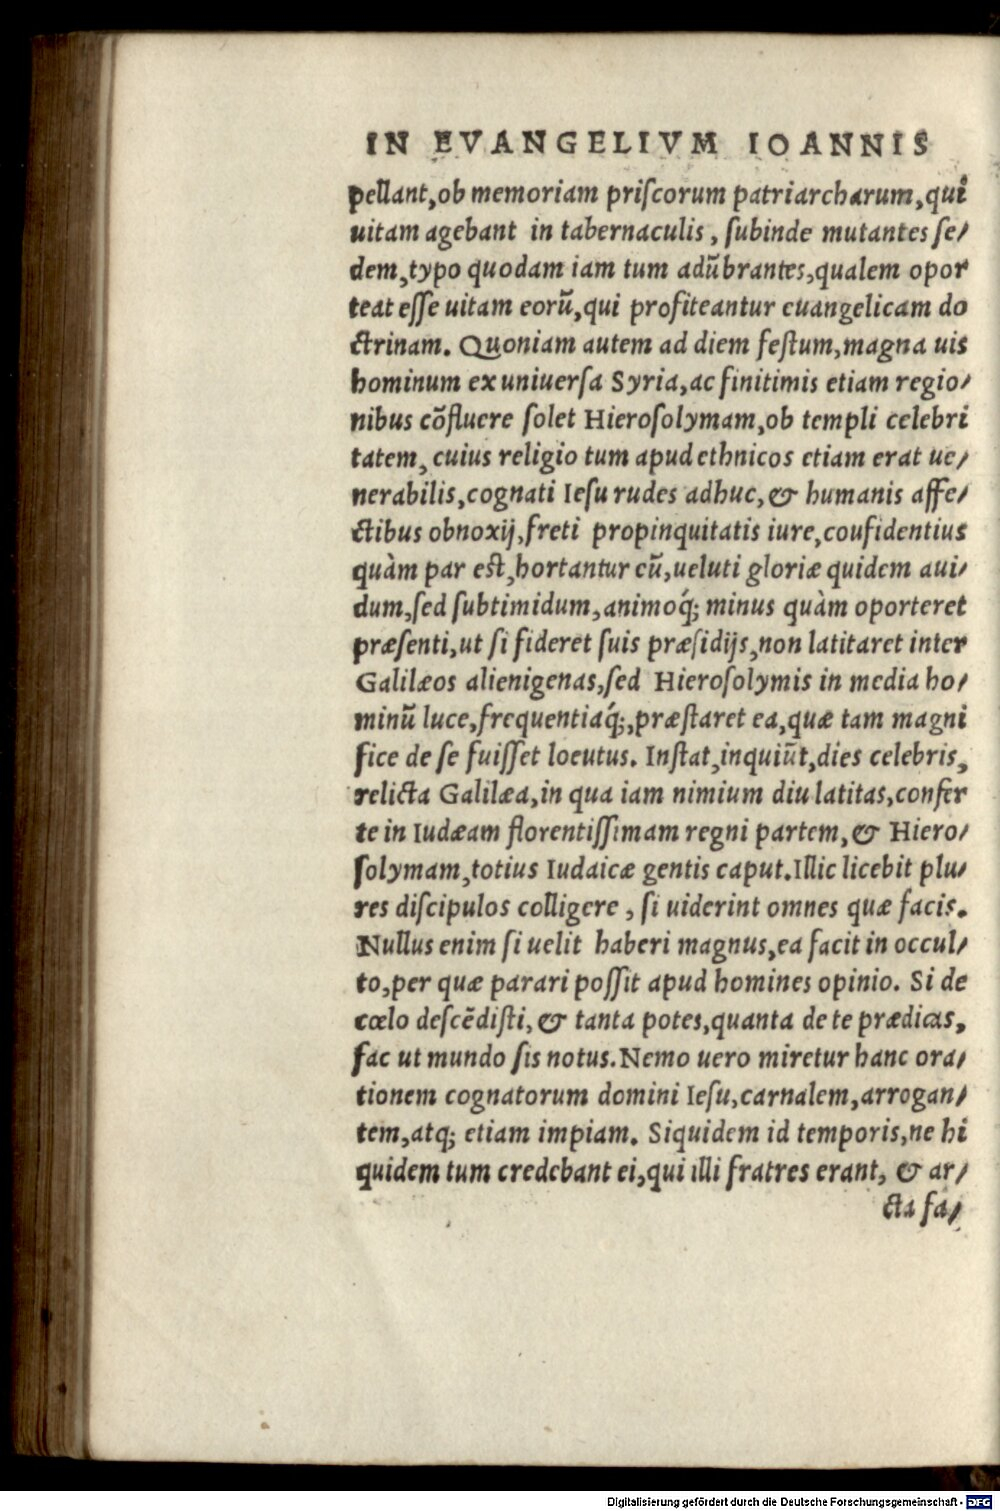 IN EVANGELIVM IOANNIS
pellant,ob memoriam priſcorum patriarcharum,qui
uitam agebant in tabernaculis, ſubinde mutantes ſe/
dem,typo quodam iam tum adũbrantes,qualem opor
teat eſſe uitam eorũ,qui profiteantur euangelicam do
ctrinam. Quoniam autem ad diem feſtum,magna uis
hominum ex uniuerſa Syria,ac finitimis etiam regio/
nibus cõfluere ſolet Hieroſolymam,ob templi celebri
tatem, cuius religio tum apud ethnicos etiam erat ue/
nerabilis,cognati Ieſu rudes adhuc,& humanis affe/
ctibus obnoxij,freti propinquitatis iure,coufidentius
quàm par eſt,hortantur eũ,ueluti gloriæ quidem aui/
dum,ſed ſubtimidum,animoq́; minus quàm oporteret
præſenti,ut ſi fideret ſuis præſidijs,non latitaret inter
Galilæos alienigenas,ſed Hieroſolymis in media ho/
minũ luce,frequentiaq́;,præſtaret ea,quæ tam magni
fice de ſe fuiſſet locutus. Inſtat,inquiũt,dies celebris,
relicta Galilæa,in qua iam nimium diu latitas,confer
te in Iudæam florentiſſimam regni partem,& Hiero/
ſolymam,totius Iudaicæ gentis caput.Illic licebit plu/
res diſcipulos colligere, ſi uiderint omnes quæ facis.
Nullus enim ſi uelit haberi magnus,ea facit in occul/
to,per quæ parari poſſit apud homines opinio. Si de
cœlo deſcẽdiſti,& tanta potes,quanta de te prædicas,
fac ut mundo ſis notus.Nemo uero miretur hanc ora/
tionem cognatorum domini Ieſu,carnalem,arrogan/
tem,atq; etiam impiam. Siquidem id temporis,ne hi
quidem tum credebant ei,qui illi fratres erant, & ar/
cta fa/
Digitalisierung gefördert durch die Deutsche Forschungsgemeinschaft - DFG